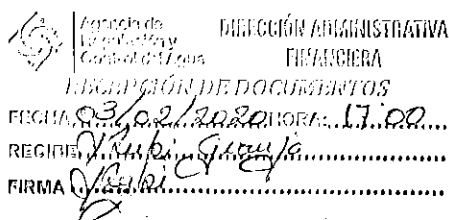 Agencia de
Regulación y
Control del Agua
DIRECCIÓN ADMINISTRATIVA
FINANCIERA
RECEPCIÓN DE DOCUMENTOS
FECHA 03/02/2020 HORA: 17:00
RECIBE
FIRMA